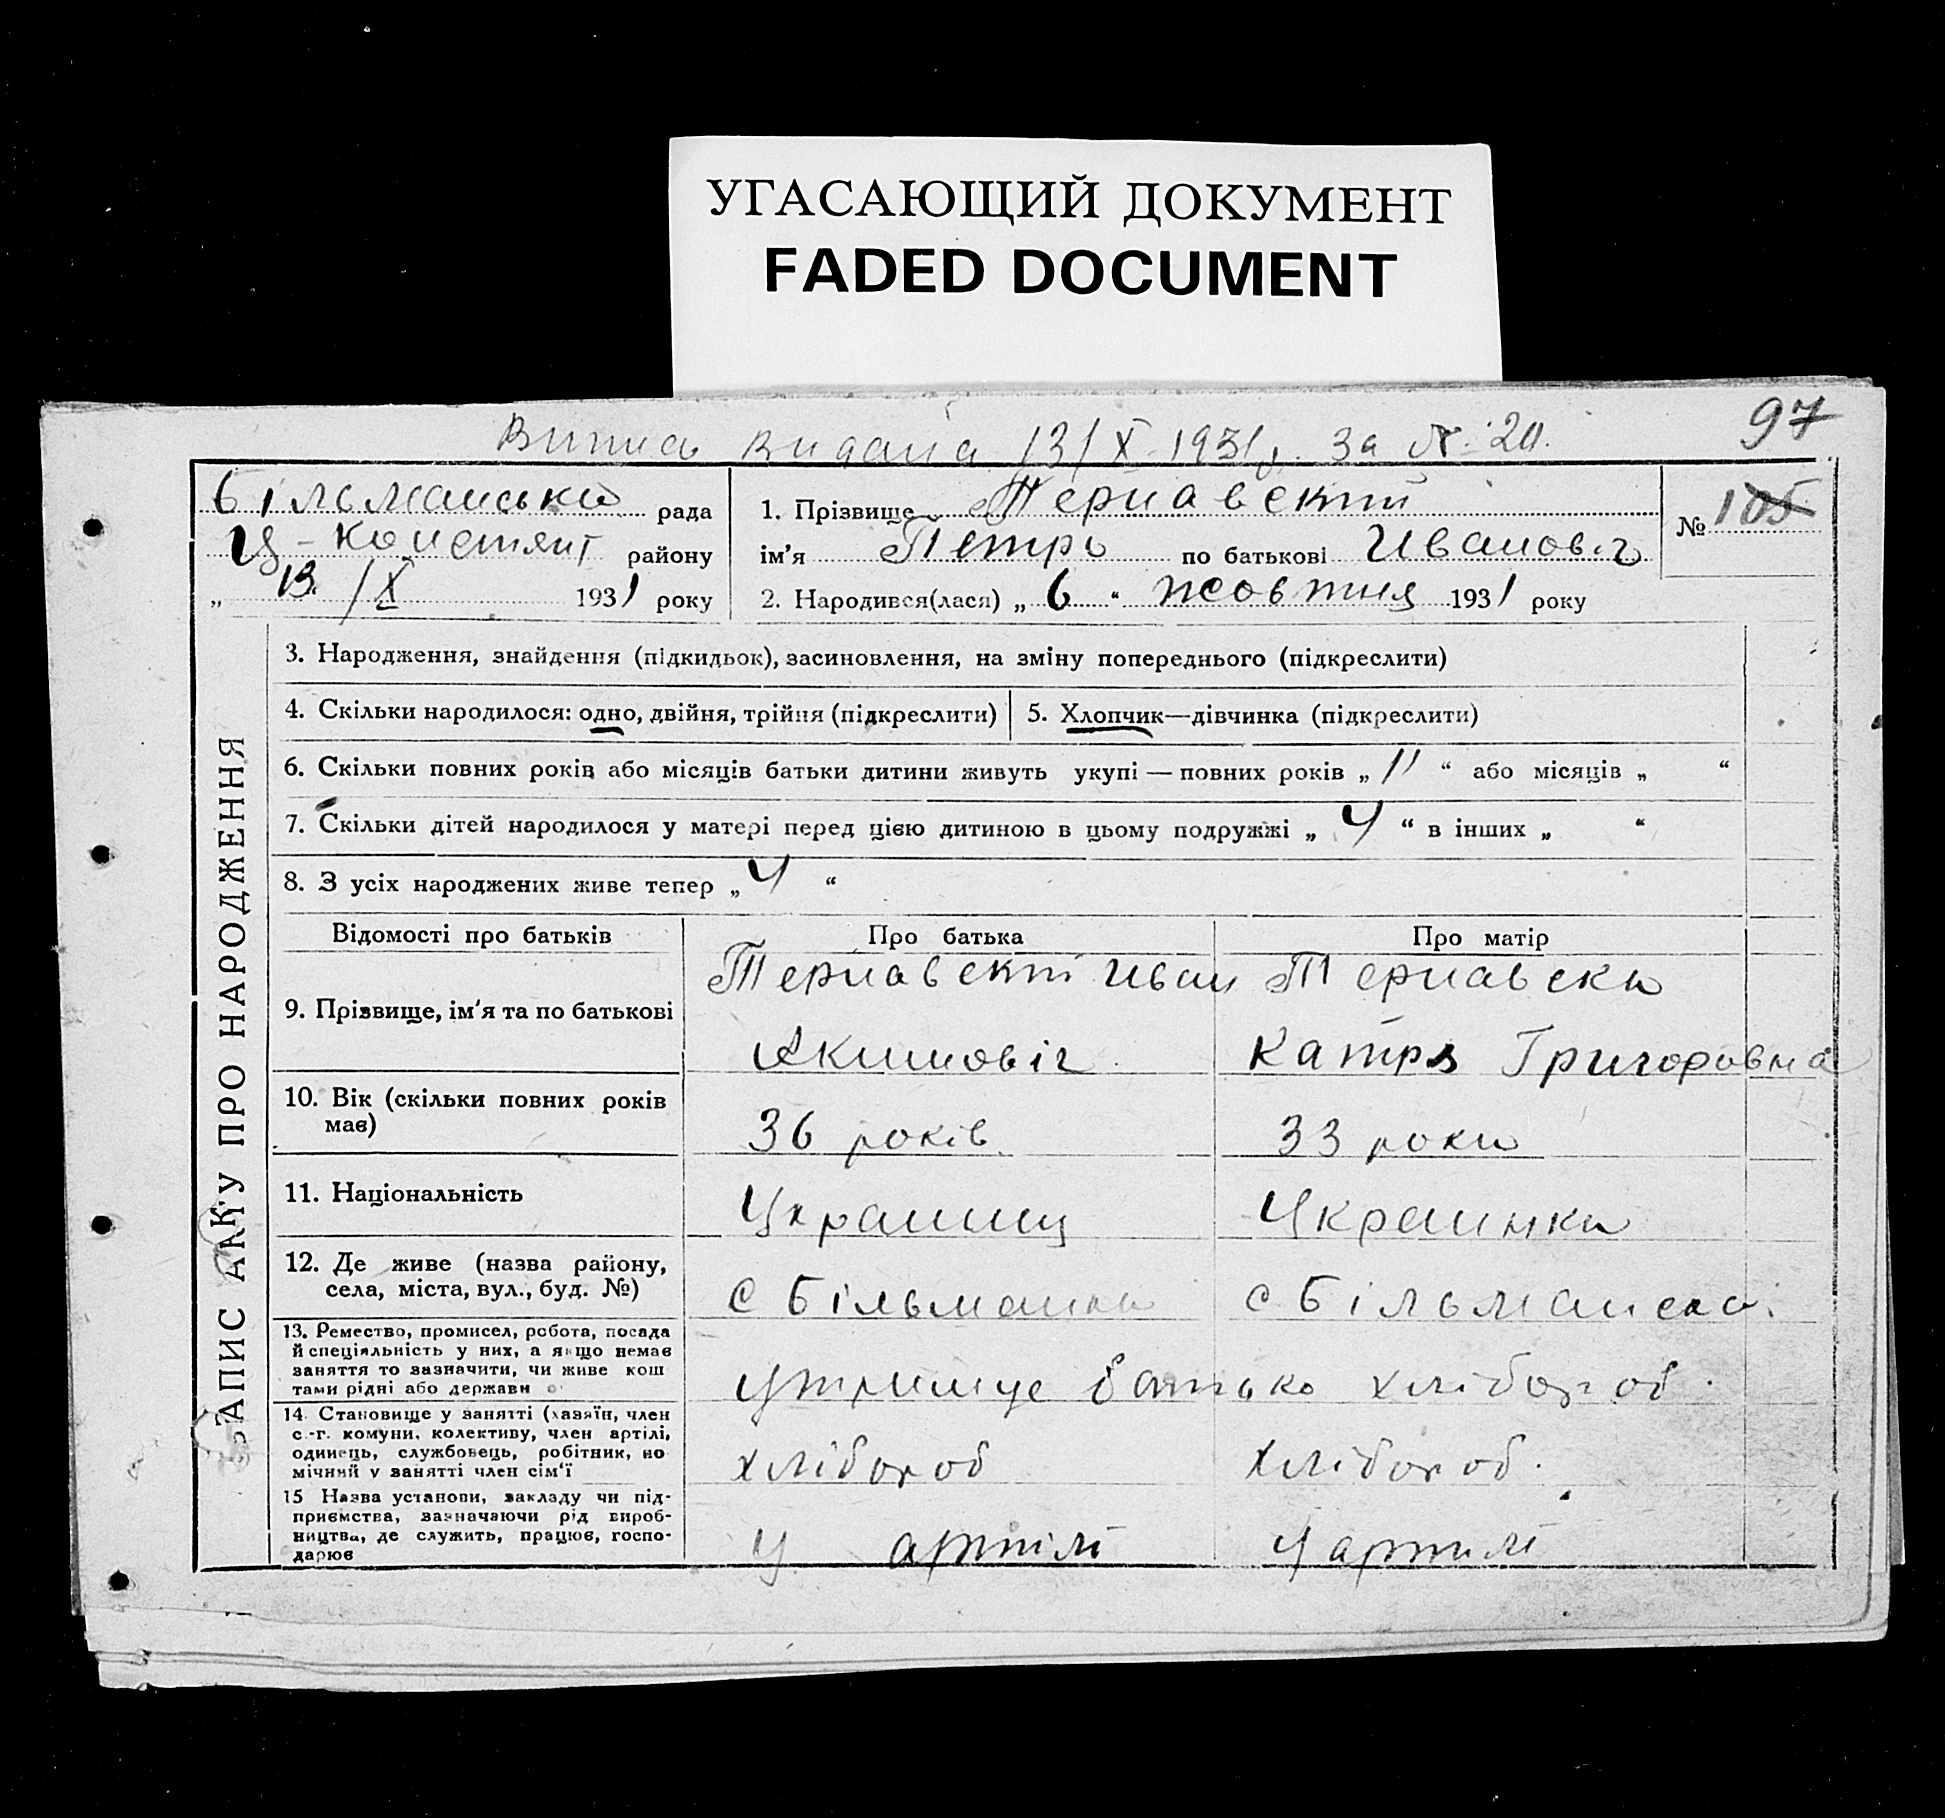 УГАСАЮЩИЙ ДОКУМЕНТ
FADED DOCUMENT
97
Випись видана 13/X 1931 р. за № 20.
Більманська рада
Ц-Констянт району
„ 13 / X 1931 року
1. Прізвище Тернавский
ім'я Петро по батькові Иванович
2. Народився(лася) „ 6 “ жовтня 1931 року
№ 105
ЗАПИС АКУ ПРО НАРОДЖЕННЯ
3. Народження, знайдення (підкидьок), засиновлення, на зміну попереднього (підкреслити)
4. Скільки народилося: одно, двійня, трійня (підкреслити)
5. Хлопчик—дівчинка (підкреслити)
6. Скільки повних років або місяців батьки дитини живуть укупі — повних років „ 11 “ або місяців „ “
7. Скільки дітей народилося у матері перед цією дитиною в цьому подружжі „ 4 “ в інших „ “
8. З усіх народжених живе тепер „ 4 “
Відомості про батьків
Про батька
Про матір
9. Прізвище, ім'я та по батькові
Тернавский Иван
Акимовіч
Тернавска
Катря Григоровна
10. Вік (скільки повних років
має)
36 років
33 роки
11. Національність
Украинец
Украинка
12. Де живе (назва району,
села, міста, вул., буд. №)
с Більманка
с Більманска.
13. Ремество, промисел, робота, посада
й спеціяльність у них, а якщо немає
заняття то зазначити, чи живе кош
тами рідні або держави
утримує батько хлібороб.
14. Становище у занятті (хазяїн, член
с.-г. комуни, колективу, член артілі,
одинець, службовець, робітник, по
мічний у занятті член сім'ї
хлібороб
хлібороб.
15 Назва установи, закладу чи під-
приємства, зазначаючи рід вироб-
ництва, де служить, працює, госпо-
дарює
у артілі
у артилі